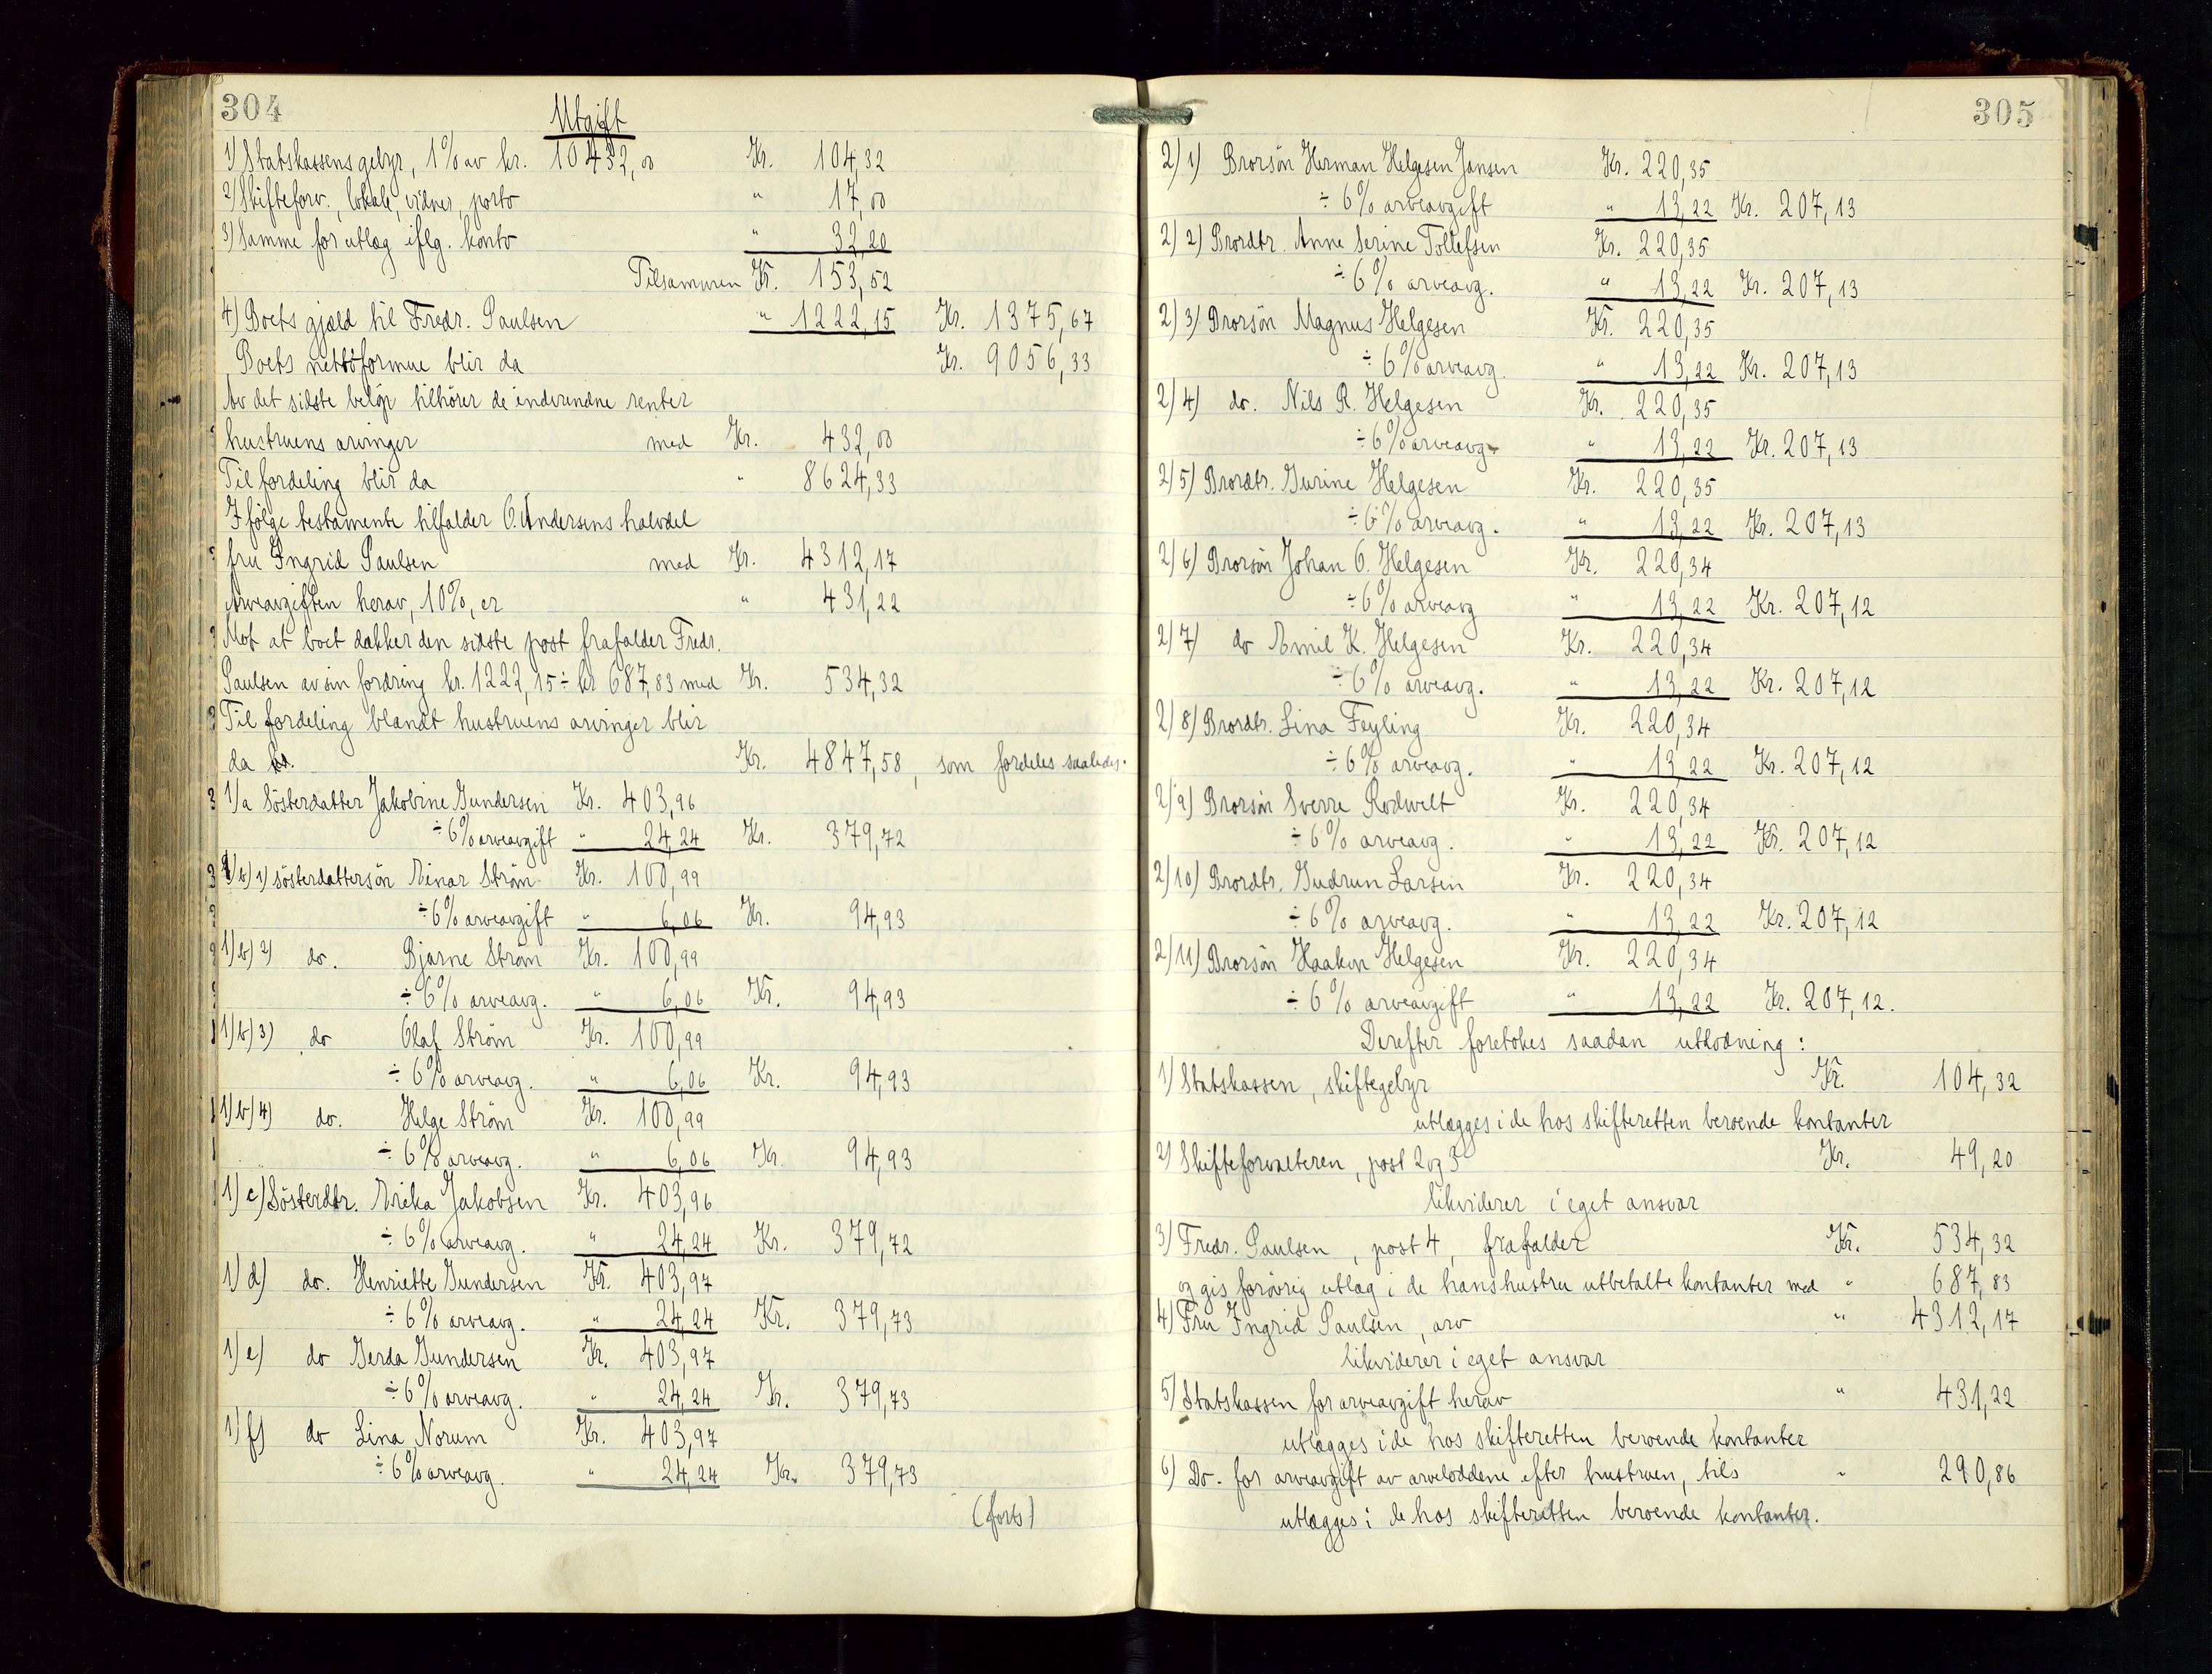 304
Utgift
1) Statskassens gebyr, 1% av kr. 10432,00 Kr. 104,32
2) Skifteforv., lokale, vidner, porto " 17,00
3) Samme for utlæg iflg. konto " 32,20
Tilsammen Kr. 153,52
4) Boets gjæld til Fredr. Paulsen " 1222,15 Kr. 1375,67
Boets nettoformue blir da Kr. 9056,33
Av det sidste beløp tilhører de indvundne renter
hustruens arvinger med Kr. 432,00
Til fordeling blir da " 8624,33
Ifølge testamente tilfalder O. Andersens halvdel
fru Ingrid Paulsen med Kr. 4312,17
Arveavgiften herav, 10%, er " 431,22
Mot at boet dækker den sidste post frafalder Fredr.
Paulsen av sin fordring kr. 1222,15 ÷ kr 687,83 med Kr. 534,32
Til fordeling blandt hustruens arvinger blir
da Kr. 4847,58, som fordeles saaledes:
1/a Søsterdatter Jakobine Gundersen Kr. 403,96
÷ 6% arveavgift " 24,24 Kr. 379,72
1/b/1) søsterdattersøn Einar Strøm Kr. 100,99
÷ 6% arveavgift " 6,06 Kr. 94,93
1/b/2) do. Bjarne Strøm Kr. 100,99
÷ 6% arveavg. " 6,06 Kr. 94,93
1/b/3) do Olaf Strøm Kr. 100,99
÷ 6% arveavg. " 6,06 Kr. 94,93
1/b/4) do. Helge Strøm Kr. 100,99
÷ 6% arveavg. " 6,06 Kr. 94,93
1/c) Søsterdtr. Erika Jakobsen Kr. 403,96
÷ 6% arveavg. " 24,24 Kr. 379,72
1/d) do. Henriette Gundersen Kr. 403,97
÷ 6% arveavg. " 24,24 Kr. 379,73
1/e) do Gerda Gundersen Kr. 403,97
÷ 6% arveavg. " 24,24 Kr. 379,73
1/f) do Lina Norum Kr. 403,97
÷ 6% arveavg. " 24,24 Kr. 379,73
(forts)
305
2/1) Brorsøn Herman Helgesen Jansen Kr. 220,35
÷ 6% arveavgift " 13,22 Kr. 207,13
2/2) Brordtr. Anne Serine Tollefsen Kr. 220,35
÷ 6% arveavg. " 13,22 Kr. 207,13
2/3) Brorsøn Magnus Helgesen Kr. 220,35
÷ 6% arveavg. " 13,22 Kr. 207,13
2/4) do. Nils R. Helgesen Kr. 220,35
÷ 6% arveavg. " 13,22 Kr. 207,13
2/5) Brordtr. Gurine Helgesen Kr. 220,35
÷ 6% arveavg. " 13,22 Kr. 207,13
2/6) Brorsøn Johan O. Helgesen Kr. 220,34
÷ 6% arveavg " 13,22 Kr. 207,12
2/7) do Emil K. Helgesen Kr. 220,34
÷ 6% arveavg. " 13,22 Kr. 207,12
2/8) Brordtr. Lina Feyling Kr. 220,34
÷ 6% arveavg. " 13,22 Kr. 207,12
2/9) Brorsøn Sverre Rodwelt Kr. 220,34
÷ 6% arveavg. " 13,22 Kr. 207,12
2/10) Brordtr. Gudrun Larsen Kr. 220,34
÷ 6% arveavg. " 13,22 Kr. 207,12
2/11) Brorsøn Haakon Helgesen Kr. 220,34
÷ 6% arveavgift " 13,22 Kr. 207,12.
Derefter foretokes saadan utlodning:
1) Statskassen, skiftegebyr Kr. 104,32
utlægges i de hos skifteretten beroende kontanter
2) Skifteforvalteren, post 2 og 3 Kr. 49,20
likviderer i eget ansvar
3) Fredr. Paulsen, post 4, frafalder Kr. 534,32
og gis forøvrig utlæg i de hans hustru utbetalte kontanter med " 687,83
4) Fru Ingrid Paulsen, arv " 4312,17
likviderer i eget ansvar
5) Statskassen for arveavgift herav " 431,22
utlægges i de hos skifteretten beroende kontanter
6) Do. for arveavgift av arveloddene efter hustruen, tils " 290,86
utlægges i de hos skifteretten beroende kontanter.